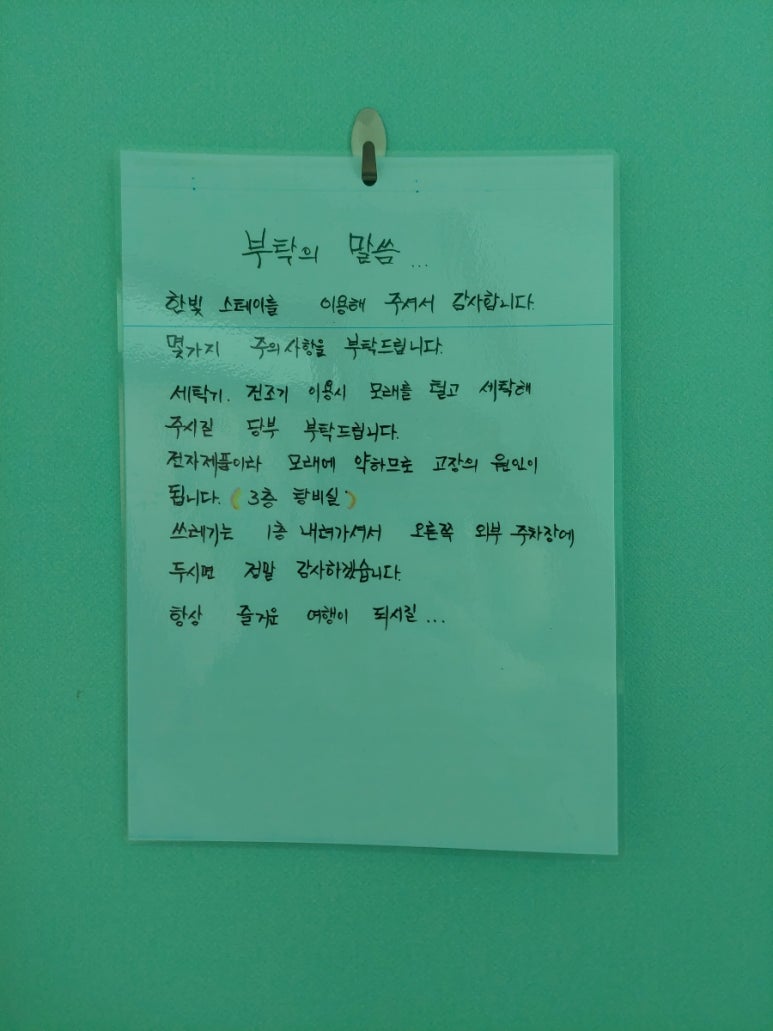 부탁의 말씀...
한빛 스테이를 이용해 주셔서 감사합니다.
몇가지 주의사항을 부탁드립니다.
세탁기. 건조기 이용시 모래를 털고 세탁해
주시길 당부 부탁드립니다.
전자제품이라 모래에 약하므로 고장의 원인이
됩니다. (3층 탕비실)
쓰레기는 1층 내려가셔서 오른쪽 외부 주차장에
두시면 정말 감사하겠습니다.
항상 즐거운 여행이 되시길...